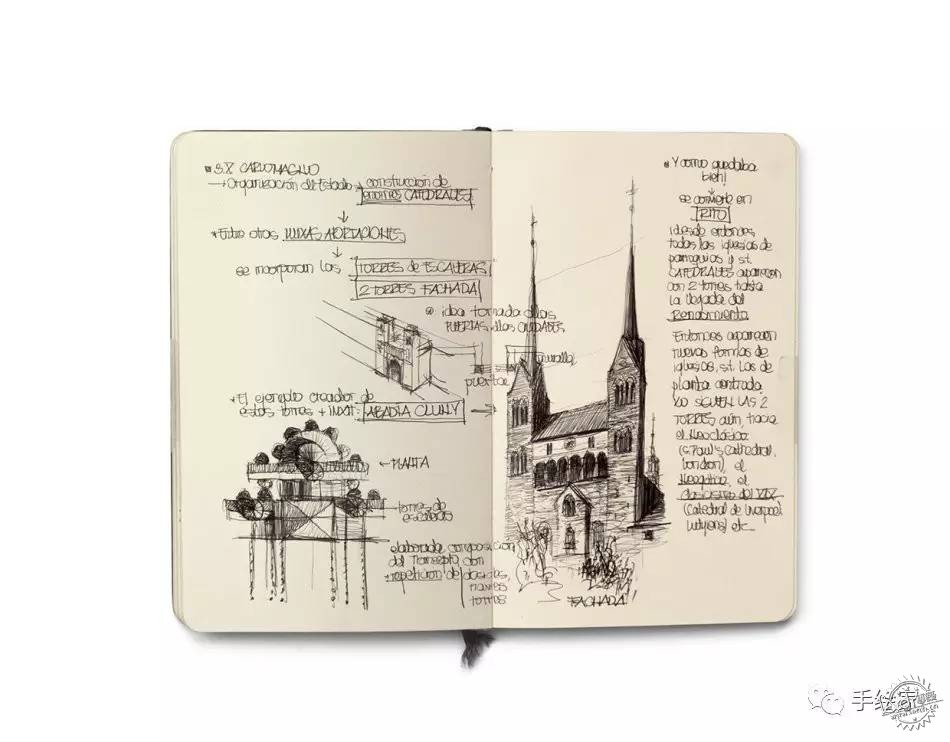 * S.X CARLOMAGNO
→ Organización del Estado → construcción de
enormes CATEDRALES
* Entre otras MUXAS APORTACIONES
se incorporan las TORRES de ESCALERAS
2 TORRES FACHADA
idea tomada de las
PUERTAS de las CIUDADES
muralla
puerta
* El ejemplo creador de
estas torres + IMXT: ABADIA CLUNY →
← PLANTA
torres de
escaleras
elaborada composición
del Transepto con
repetición de ábsides,
naves
torres
FACHADA!
* Y como quedaba
bien!
se convierte en
RITO
i desde entonces
todas las iglesias de
parroquias y s.t.
CATEDRALES aparecen
con 2 torres hasta
la llegada del
Renacimiento.
Entonces aparecen
nuevas formas de
iglesias, s.t. las de
planta centrada.
Xo SIGUEN LAS 2
TORRES aún, hacia
el Neoclásico
(S.Paul's Cathedral,
London), el
Neogótico, el
Clasicismo del XIX
(Catedral de Liverpool
Lutyens) etc
手绘家